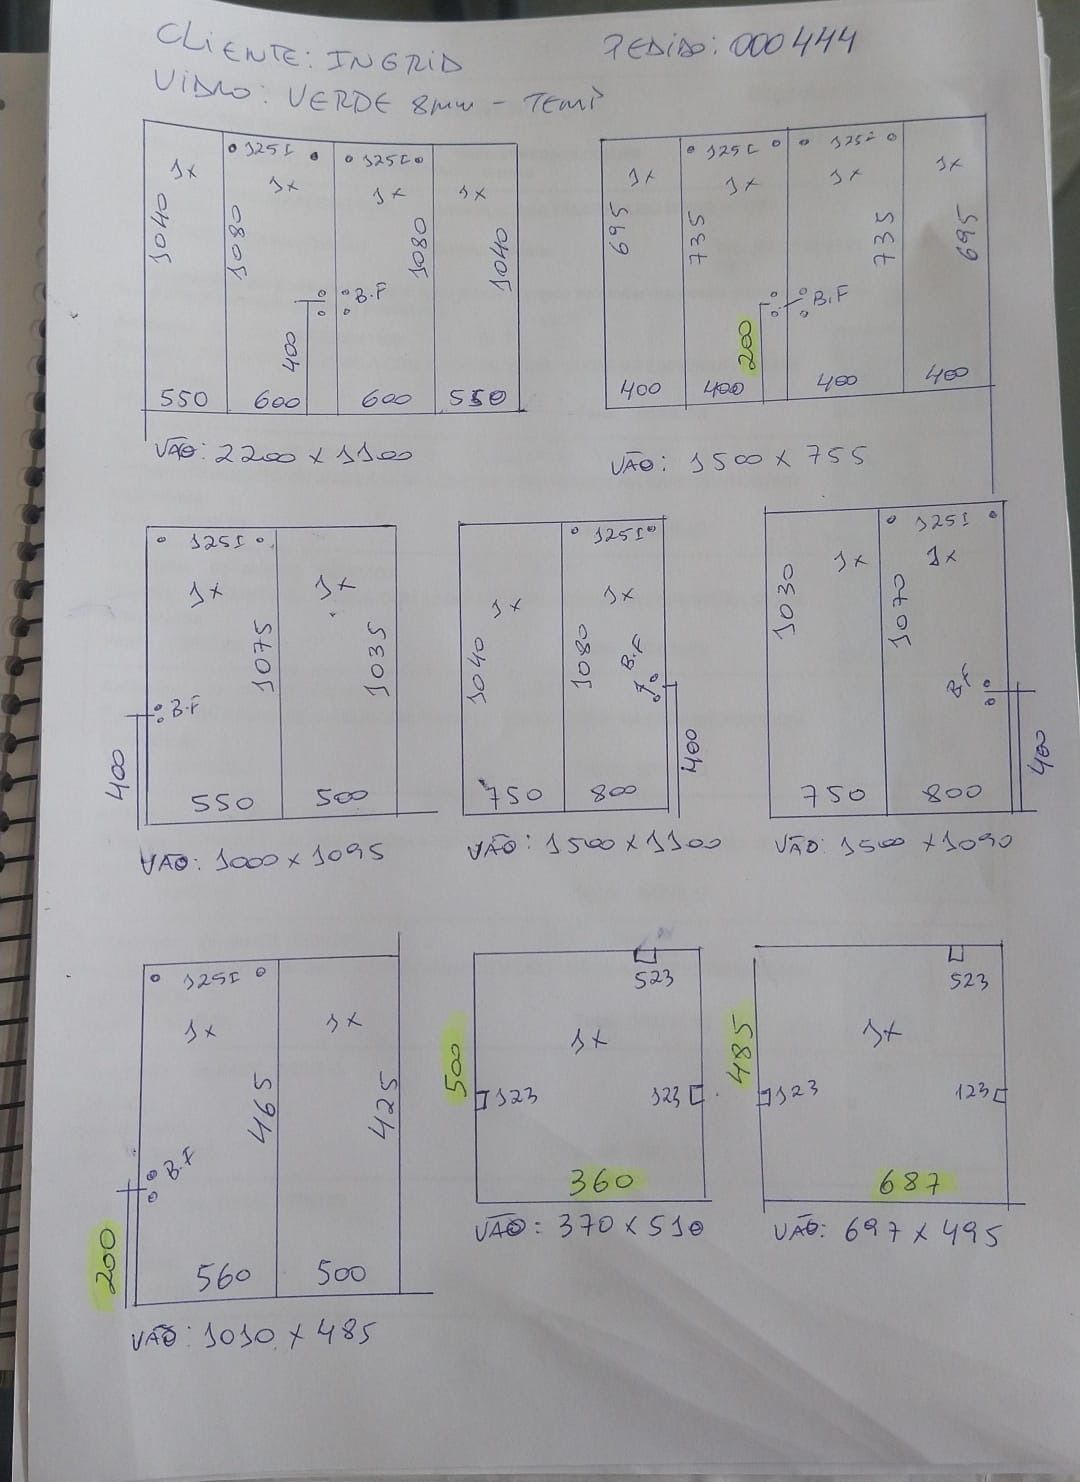 CLIENTE: INGRID
PEDIDO: 000444
VIDRO: VERDE 8mm - TEMP
1x
1040
550
125I
1x
1080
400
600
125I
1x
1080
B.F
600
1x
1040
550
VÃO: 2200 x 1100
1x
695
400
125I
1x
735
200
400
125I
1x
735
B.F
400
1x
695
400
VÃO: 1500 x 755
125I
1x
1075
B.F
400
550
1x
1035
500
VÃO: 1000 x 1095
1x
1040
750
125I
1x
1080
B.F
400
800
VÃO: 1500 x 1100
1x
1030
750
125I
1x
1070
B.F
400
800
VÃO: 1500 x 1090
125I
1x
465
B.F
200
560
1x
425
500
VÃO: 1010 x 485
523
1x
500
123
123
360
VÃO: 370 x 510
523
1x
485
123
123
687
VÃO: 697 x 495